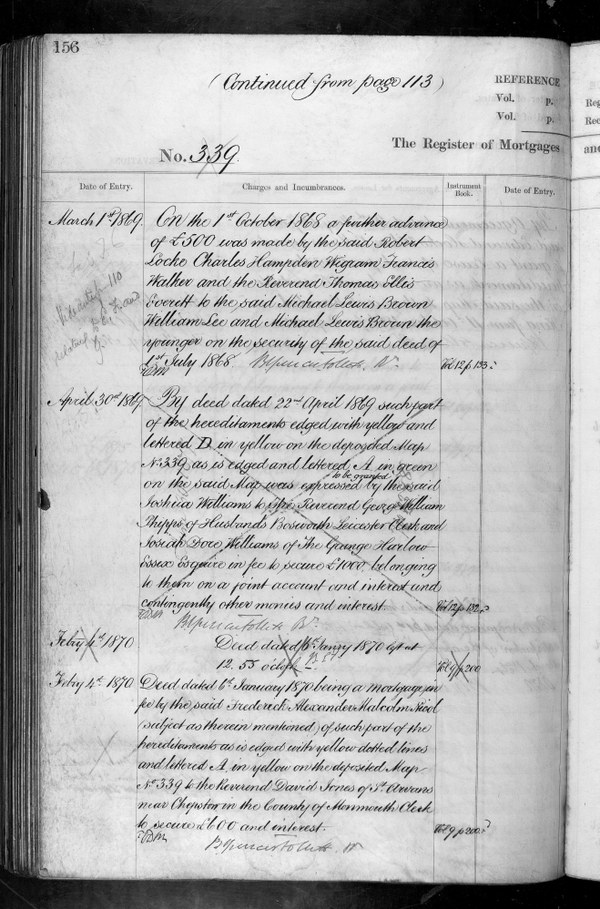 156
(Continued from page 113)
REFERENCE
Vol. p.
Vol. p.
The Register of Mortgages
No. 339.
Date of Entry.
Charges and Incumbrances.
Instrument Book.
Date of Entry.
March 1st 1869.
On the 1st October 1868 a further advance
of £500 was made by the said Robert
Locke Charles Hampden Wigram Francis
Walker and the Reverend Thomas Ellis
Everett to the said Michael Lewis Brown
William Lee and Michael Lewis Brown the
younger on the security of the said deed of
1st July 1868.
Vol 12 p 133
April 30th 1869
By deed dated 22nd April 1869 such part
of the hereditaments edged with yellow and
lettered D in yellow on the deposited Map
No 339 as is edged and lettered A in green
on the said Map was expressed to be granted by the said
Joshua Williams to the Reverend George William
Phipps of Husbands Bosworth Leicester Clerk and
Josiah Dore Williams of The Grange Harlow
Essex Esquire in fee to secure £1000 belonging
to them on a joint account and interest and
contingently other monies and interest.
Vol 12 p 132
Febry 4th 1870
Deed dated 6th Janry 1870 left at
12.55 o'clock
Vol 9 p 200
Febry 4th 1870
Deed dated 6th January 1870 being a mortgage in
fee by the said Frederick Alexander Malcolm Nicol
(subject as therein mentioned) of such part of the
hereditaments as is edged with yellow dotted lines
and lettered A in yellow on the deposited Map
No 339 to the Reverend David Jones of St Arvans
near Chepstow in the County of Monmouth Clerk
to secure £600 and interest.
Vol 9 p 200